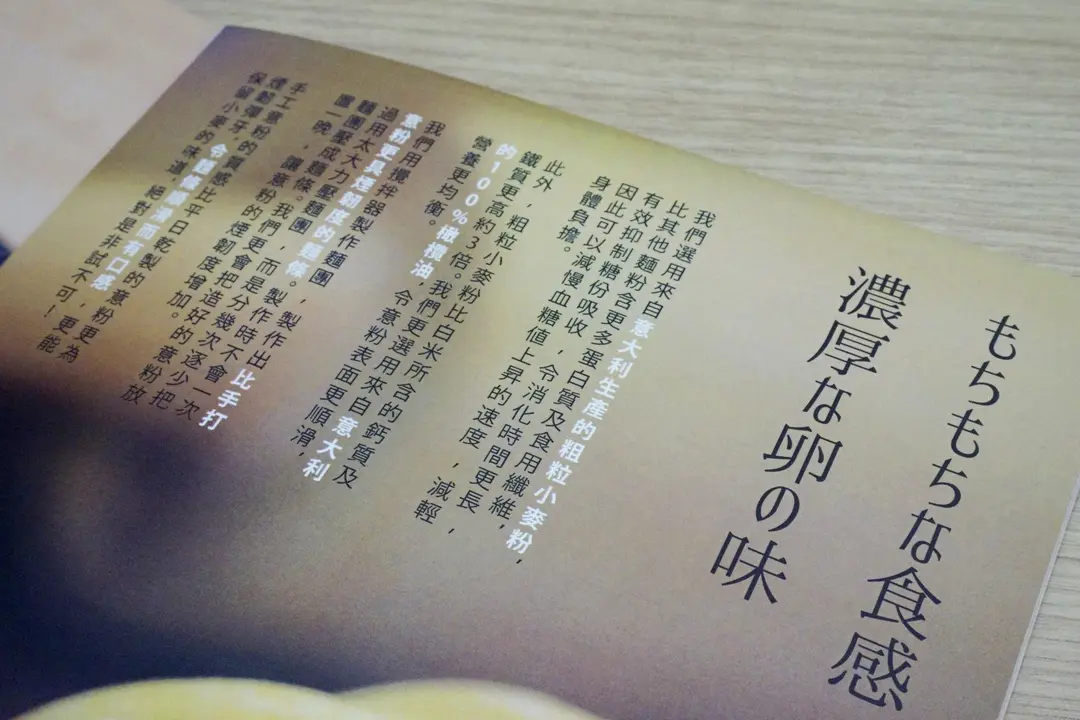 もちもちな食感
濃厚な卵の味
我們選用來自意大利生產的粗粒小麥粉，
比其他麵粉含更多蛋白質及食用纖維，
有效抑制糖份吸收，令消化時間更長，
因此可以減慢血糖值上昇的速度，減輕
身體負擔。
此外，粗粒小麥粉比白米所含的鈣質及
鐵質更高約3倍。我們更選用來自意大利
的100%橄欖油，令意粉表面更順滑，
營養更均衡。
我們用攪拌器製作麵團，製作出比手打
意粉更具煙韌度的麵條。製作時不會一次
過用太大力壓麵團，而是分幾次逐少把
麵團壓成麵條。我們更會把造好的意粉放
置一晚，讓意粉的煙韌度增加。
手工意粉的質感比平日乾製的意粉更為
煙韌彈牙，令麵條順滑而有口感，更能
保留小麥的味道，絕對是非試不可！